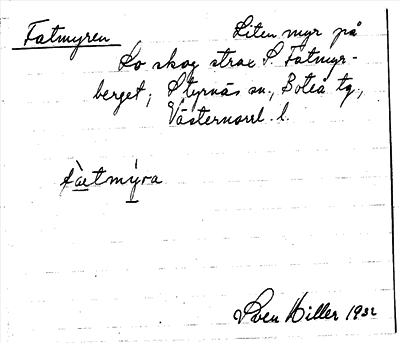 Fatmyren
Liten myr på
Lo skog strax S. Fatmyr-
berget; Styrnäs sn., Boteå tg.,
Västernorrl. l.
fàetmýra
Sven Hiller 1932